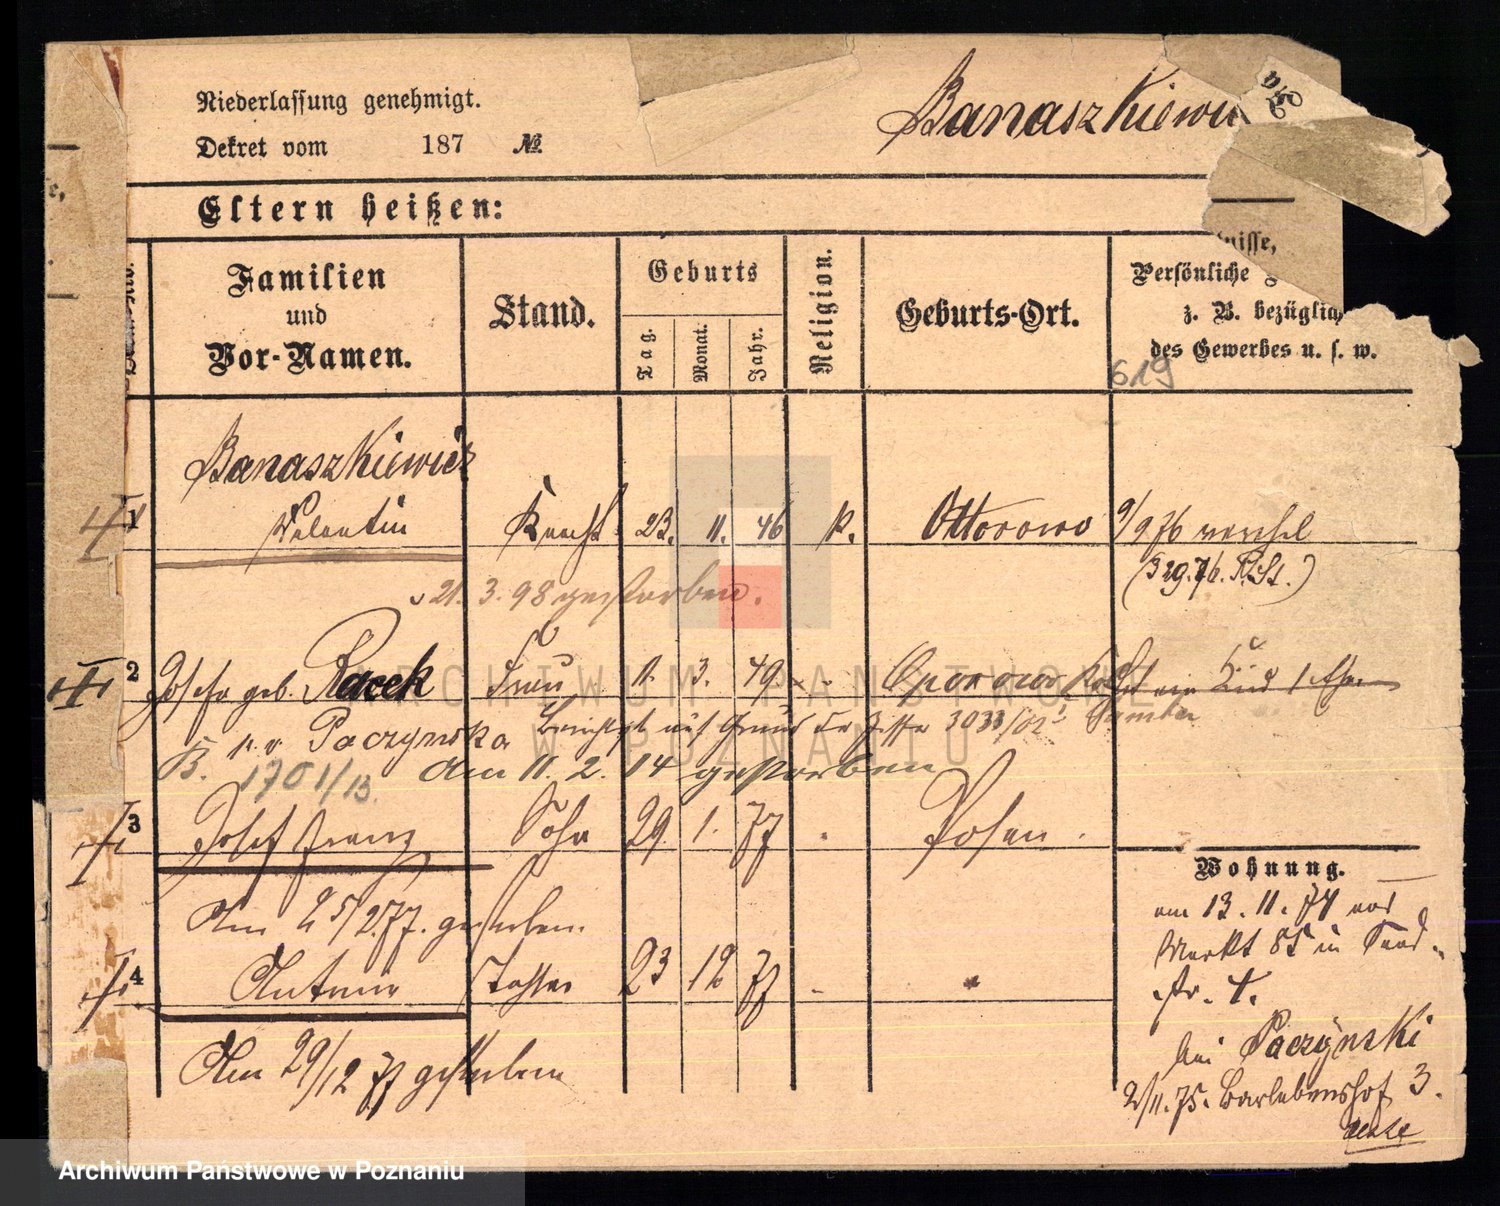 Niederlassung genehmigt.
Dekret vom 187 №
Banaszkiewi
Eltern heißen:
Familien
und
Vor-Namen.
Stand.
Geburts
Tag.
Monat.
Jahr.
Religion.
Geburts-Ort.
nisse,
Persönliche
z. B. bezüglich
des Gewerbes u. s. w.
619
Banaszkiewicz
1 Valentin Knecht 23. 11. 46 k. Ottorowo
9/9 76 verehel
(329.76. P.St.)
21. 3. 98 gestorben.
2 Josefa geb. Racek Frau 11. 3. 49 Oporowo
Kind 1 Ehe
Paczynska Berichtigt auf Grund der 3033/02 Samter
B. 1701/13. Am 11. 2. 14 gestorben
3 Josef Franz Sohn 29. 1. 77 Posen.
Am 25/2.77. gestorben.
4 Antonie Tochter 23 12 77 "
Am 29/12 77 gestorben
Wohnung.
am 13. 11. 74 von
Markt 85 in Sand-
str. 4.
bei Paczynski
2/11. 75. Barlebenshof 3.
ARCHIWUM PAŃSTWOWE
W POZNANIU
Archiwum Państwowe w Poznaniu